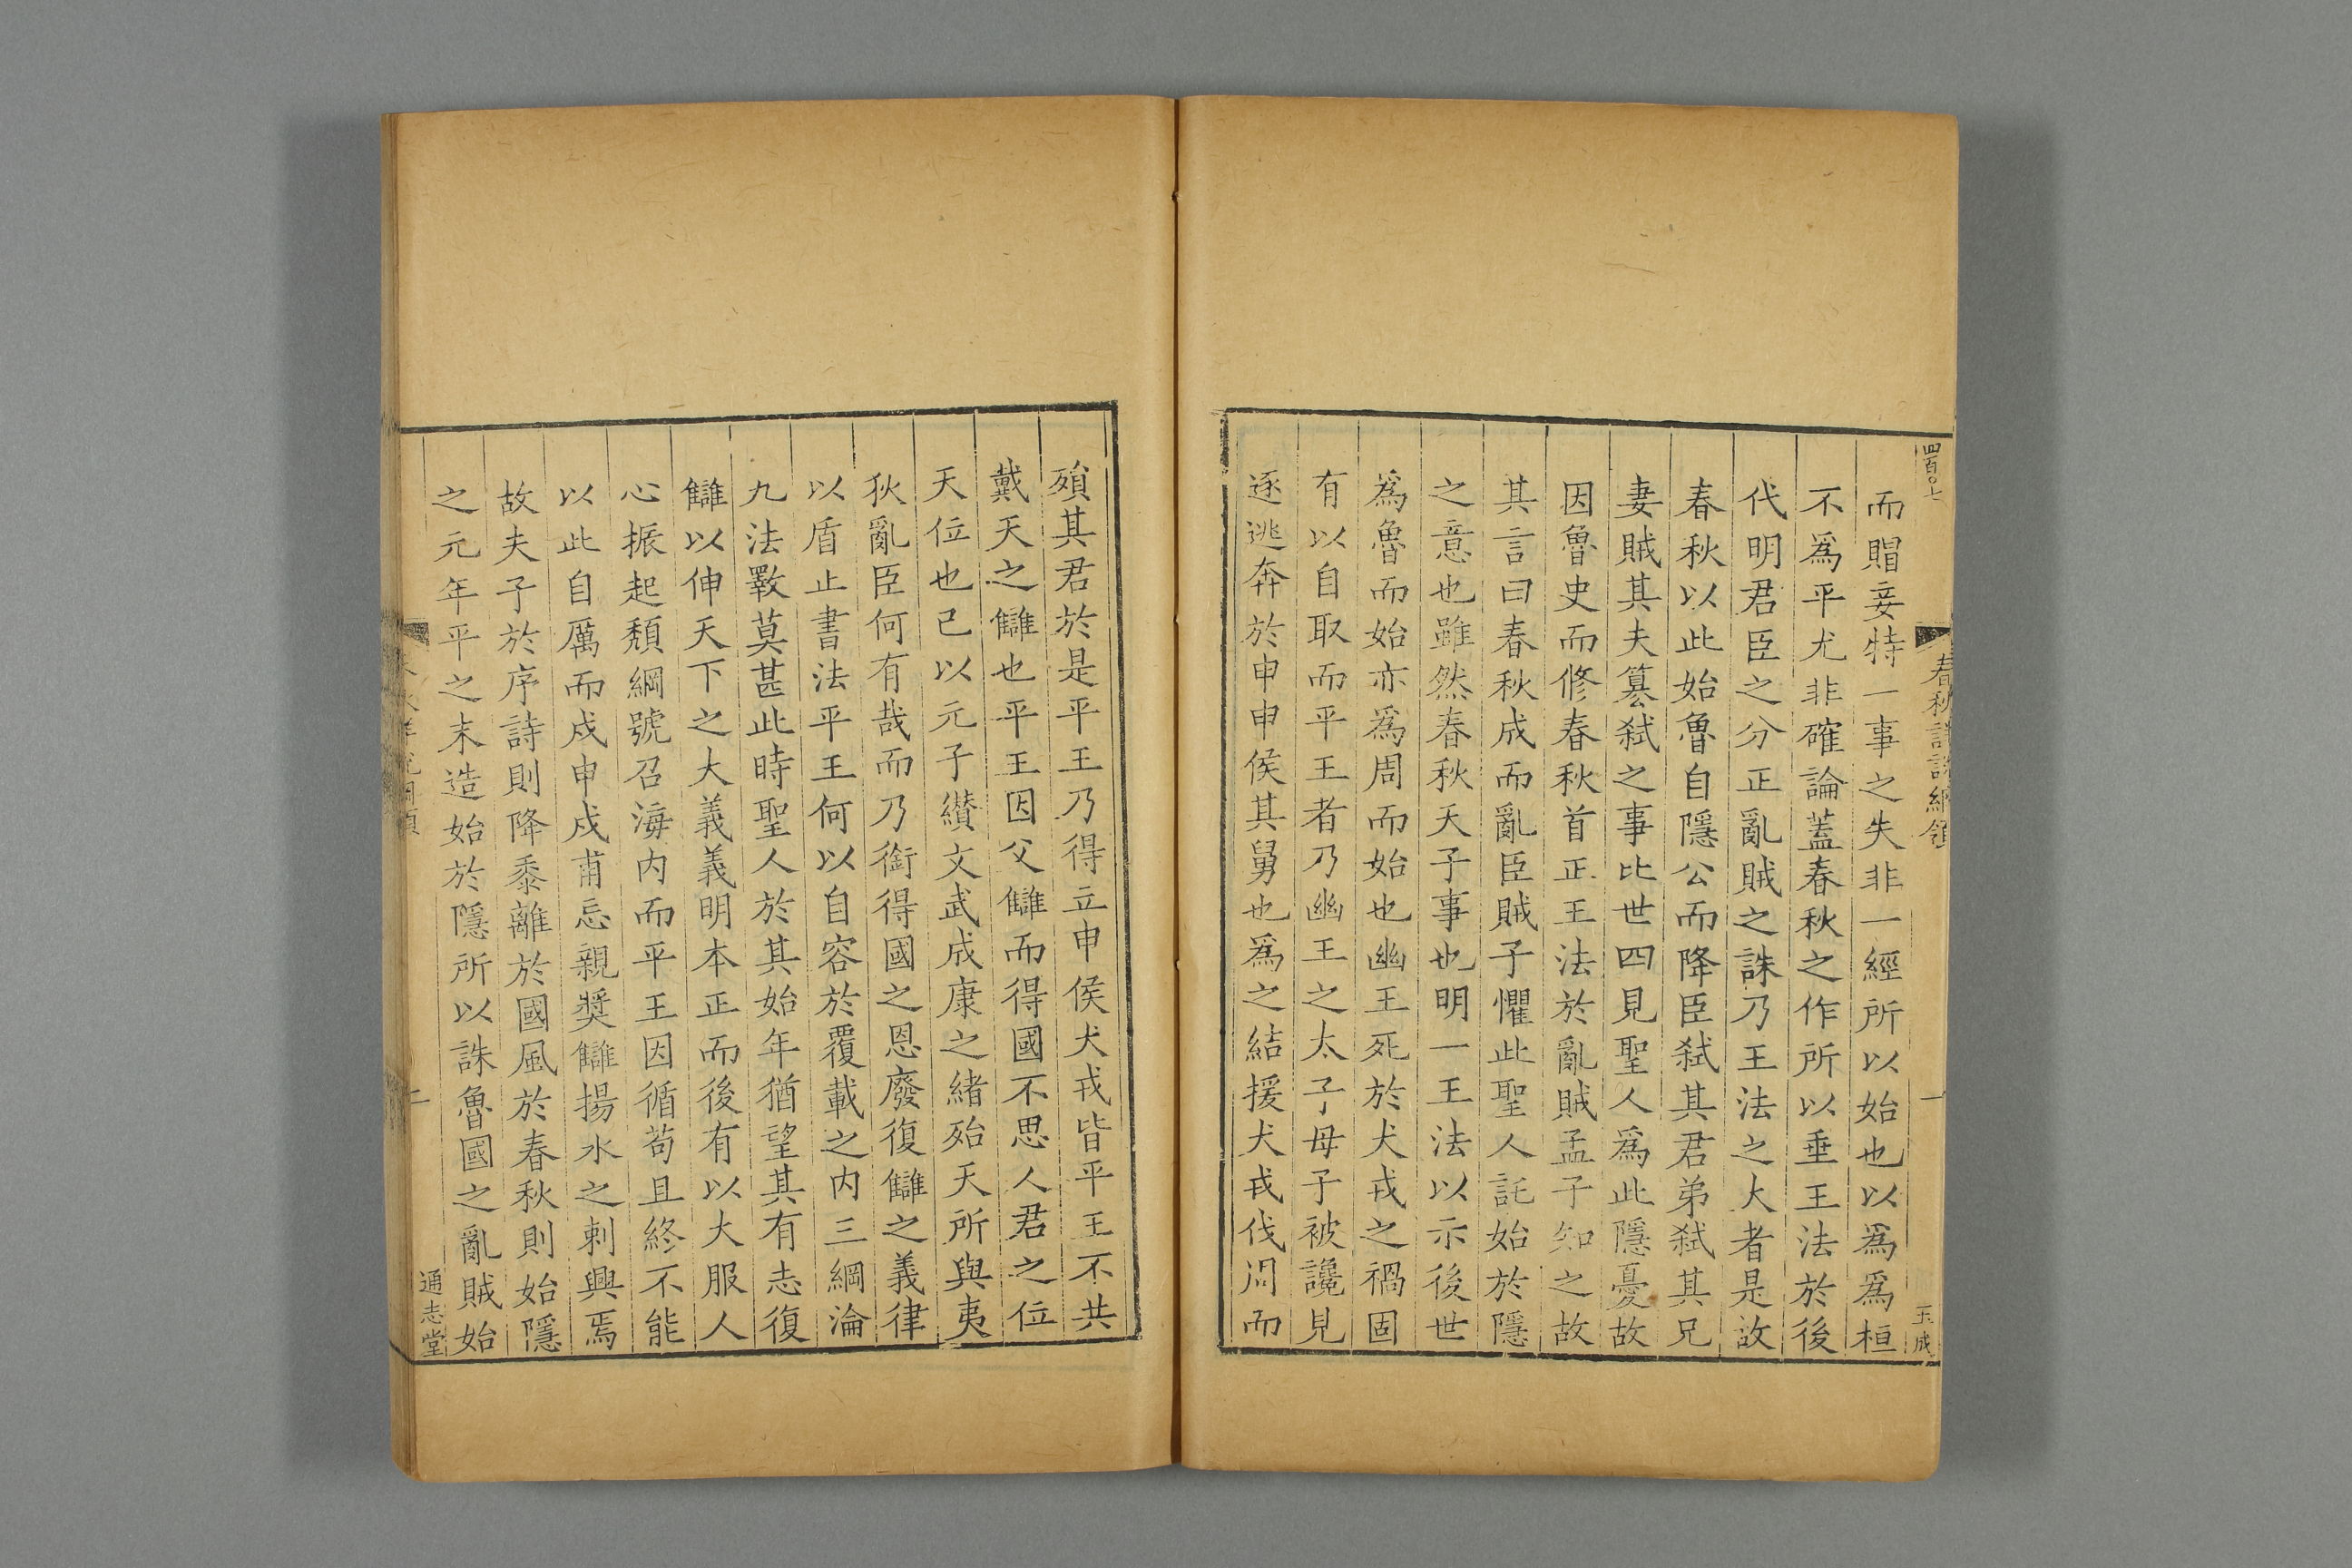 四百〇七
春秋詳說綱領
一
玉成
而賵妾特一事之失非一經所以始也以爲爲桓
不爲平尤非確論蓋春秋之作所以垂王法於後
代明君臣之分正亂賊之誅乃王法之大者是故
春秋以此始魯自隱公而降臣弒其君弟弒其兄
妻賊其夫簒弒之事比世四見聖人爲此隱憂故
因魯史而修春秋首正王法於亂賊孟子知之故
其言曰春秋成而亂臣賊子懼此聖人託始於隱
之意也雖然春秋天子事也明一王法以示後世
爲魯而始亦爲周而始也幽王死於犬戎之禍固
有以自取而平王者乃幽王之太子母子被讒見
逐逃奔於申申侯其舅也爲之結援犬戎伐周而
殞其君於是平王乃得立申侯犬戎皆平王不共
戴天之讎也平王因父讎而得國不思人君之位
天位也已以元子纘文武成康之緒殆天所與夷
狄亂臣何有哉而乃銜得國之恩廢復讎之義律
以盾止書法平王何以自容於覆載之内三綱淪
九法斁莫甚此時聖人於其始年猶望其有志復
讎以伸天下之大義義明本正而後有以大服人
心振起頽綱號召海内而平王因循苟且終不能
以此自厲而戍申戍甫忘親奬讎揚水之刺興焉
故夫子於序詩則降黍離於國風於春秋則始隱
之元年平之末造始於隱所以誅魯國之亂賊始
二
通志堂